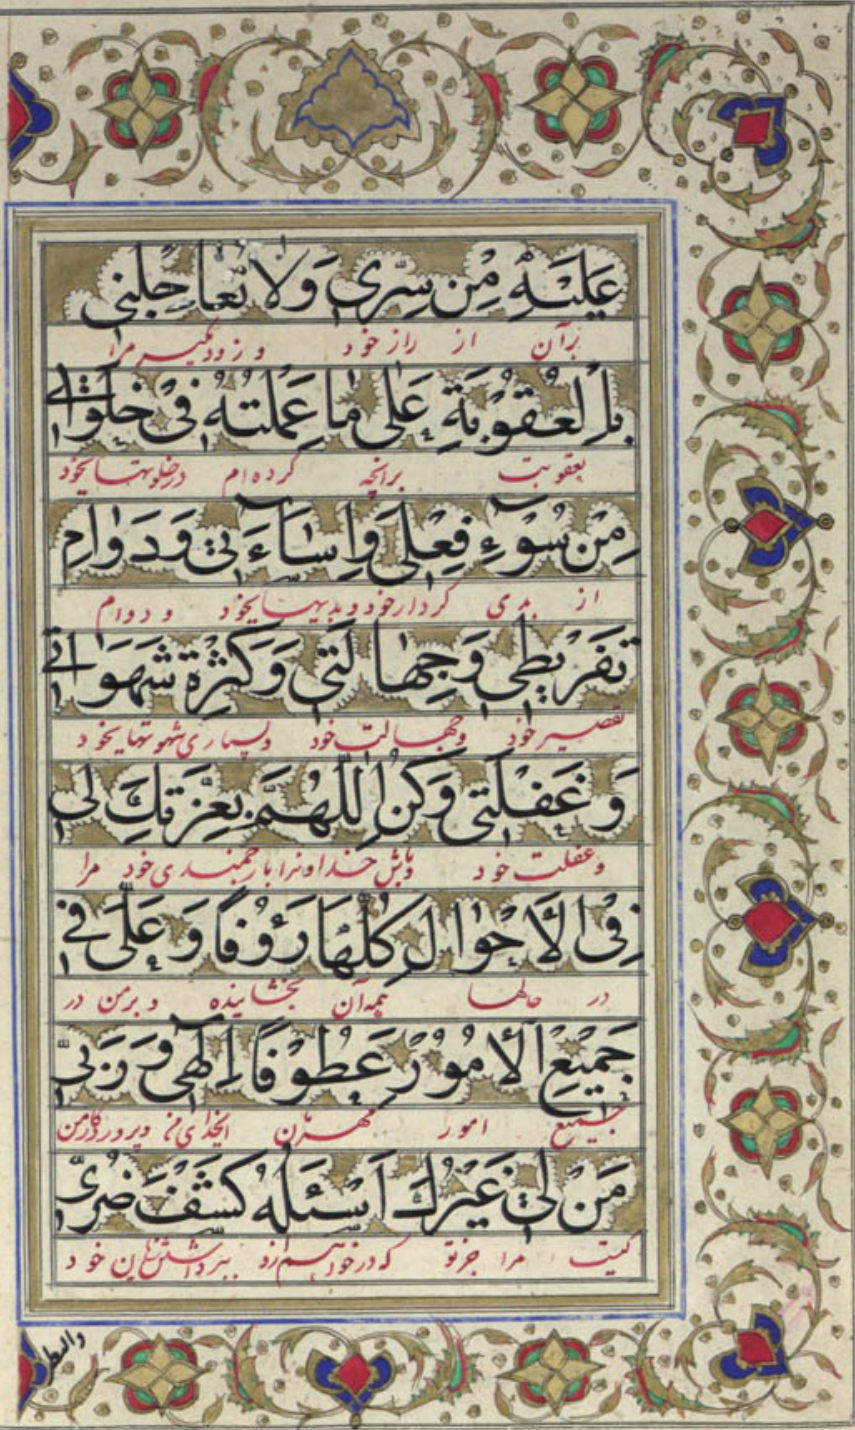 عَلَيْهِ مِنْ سِرّى وَلا تُعاجِلْنى
برآن از راز خود و زود مگیر مرا
بِالْعُقُوبَةِ عَلى ما عَمِلْتُهُ فى خَلَواتى
بعقوبت برانچه کرده‌ام در خلوتهای خود
مِنْ سُوۤءِ فِعْلى وَاِسٰاۤءَتى وَدَوامِ
از بدی کردار خود و بدیهای خود و دوام
تَفْريطى وَجَهالَتى وَكَثْرَةِ شَهَواتى
تقصیر خود و جهالت خود و بسیاری شهوتهای خود
وَغَفْلَتى وَكُنِ اللّهُمَّ بِعِزَّتِكَ لى
وغفلت خود و باش خداوندا بارجمندی خود مرا
فِى الْاَحْوالِ كُلِّها رَؤُوفًا وَعَلَىَّ فى
در حالها همه آن بخشاینده و برمن در
جَميعِ الْاُمُورِ عَطُوفًا اِلٰهى وَرَبّى
جمیع امور مهربان ایخدای من و پروردگار من
مَنْ لى غَيْرُكَ اَسْئَلُهُ كَشْفَ ضُرّى
کیست مرا جز تو که درخواهم ازو برداشتن زیان خود
والنظر